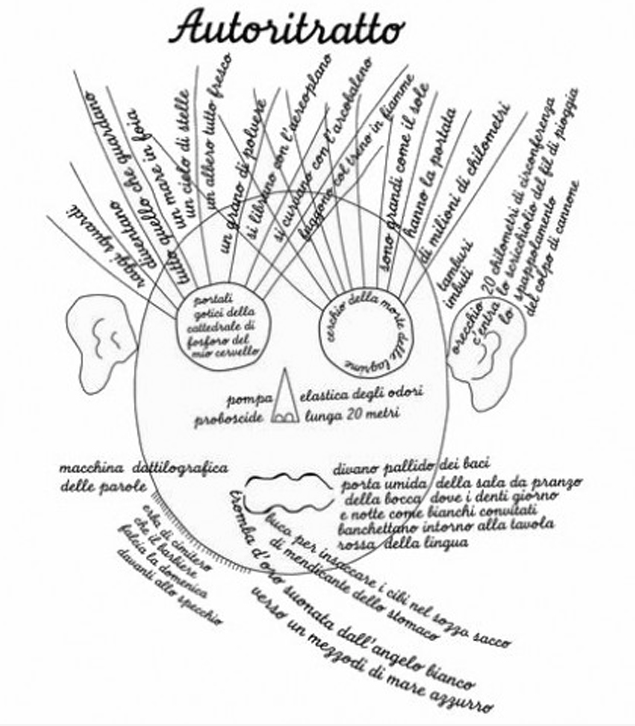 Autoritratto
raggi sguardi
diventano
tutto quello che guardano
un mare in foia
un cielo di stelle
un albero tutto fresco
un grano di polvere
si librano con l'aereoplano
si curvano con l'arcobaleno
fuggono col treno in fiamme
sono grandi come il sole
hanno la portata
di milioni di chilometri
tamburi
imbuti
orecchio 20 chilometri di circonferenza
c'entra lo scricchiolio del fil di pioggia
lo spappolamento
del colpo di cannone
portali
gotici della
cattedrale di
fosforo del
mio cervello
cerchio della morte delle lagrime
pompa elastica degli odori
proboscide lunga 20 metri
macchina dattilografica
delle parole
divano pallido dei baci
porta umida della sala da pranzo
della bocca dove i denti giorno
e notte come bianchi convitati
banchettano intorno alla tavola
rossa della lingua
erba di cimitero
che il barbiere
falcia la domenica
davanti allo specchio
buca per insaccare i cibi nel sozzo sacco
di mendicante dello stomaco
tromba d'oro suonata dall'angelo bianco
verso un mezzodì di mare azzurro